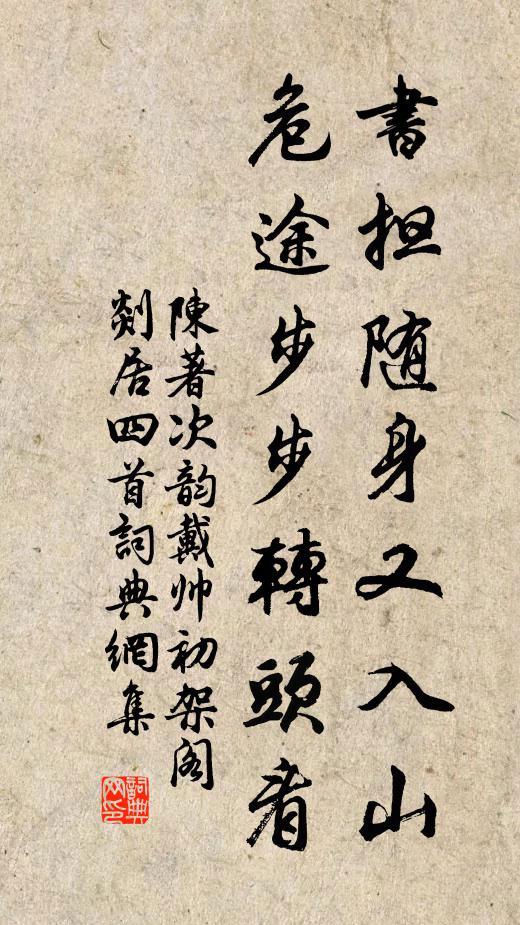 書担随身又入山
危途步步轉頭看
陳著次韵戴帅初架阁
剡居四首詞典網集
詞典网印